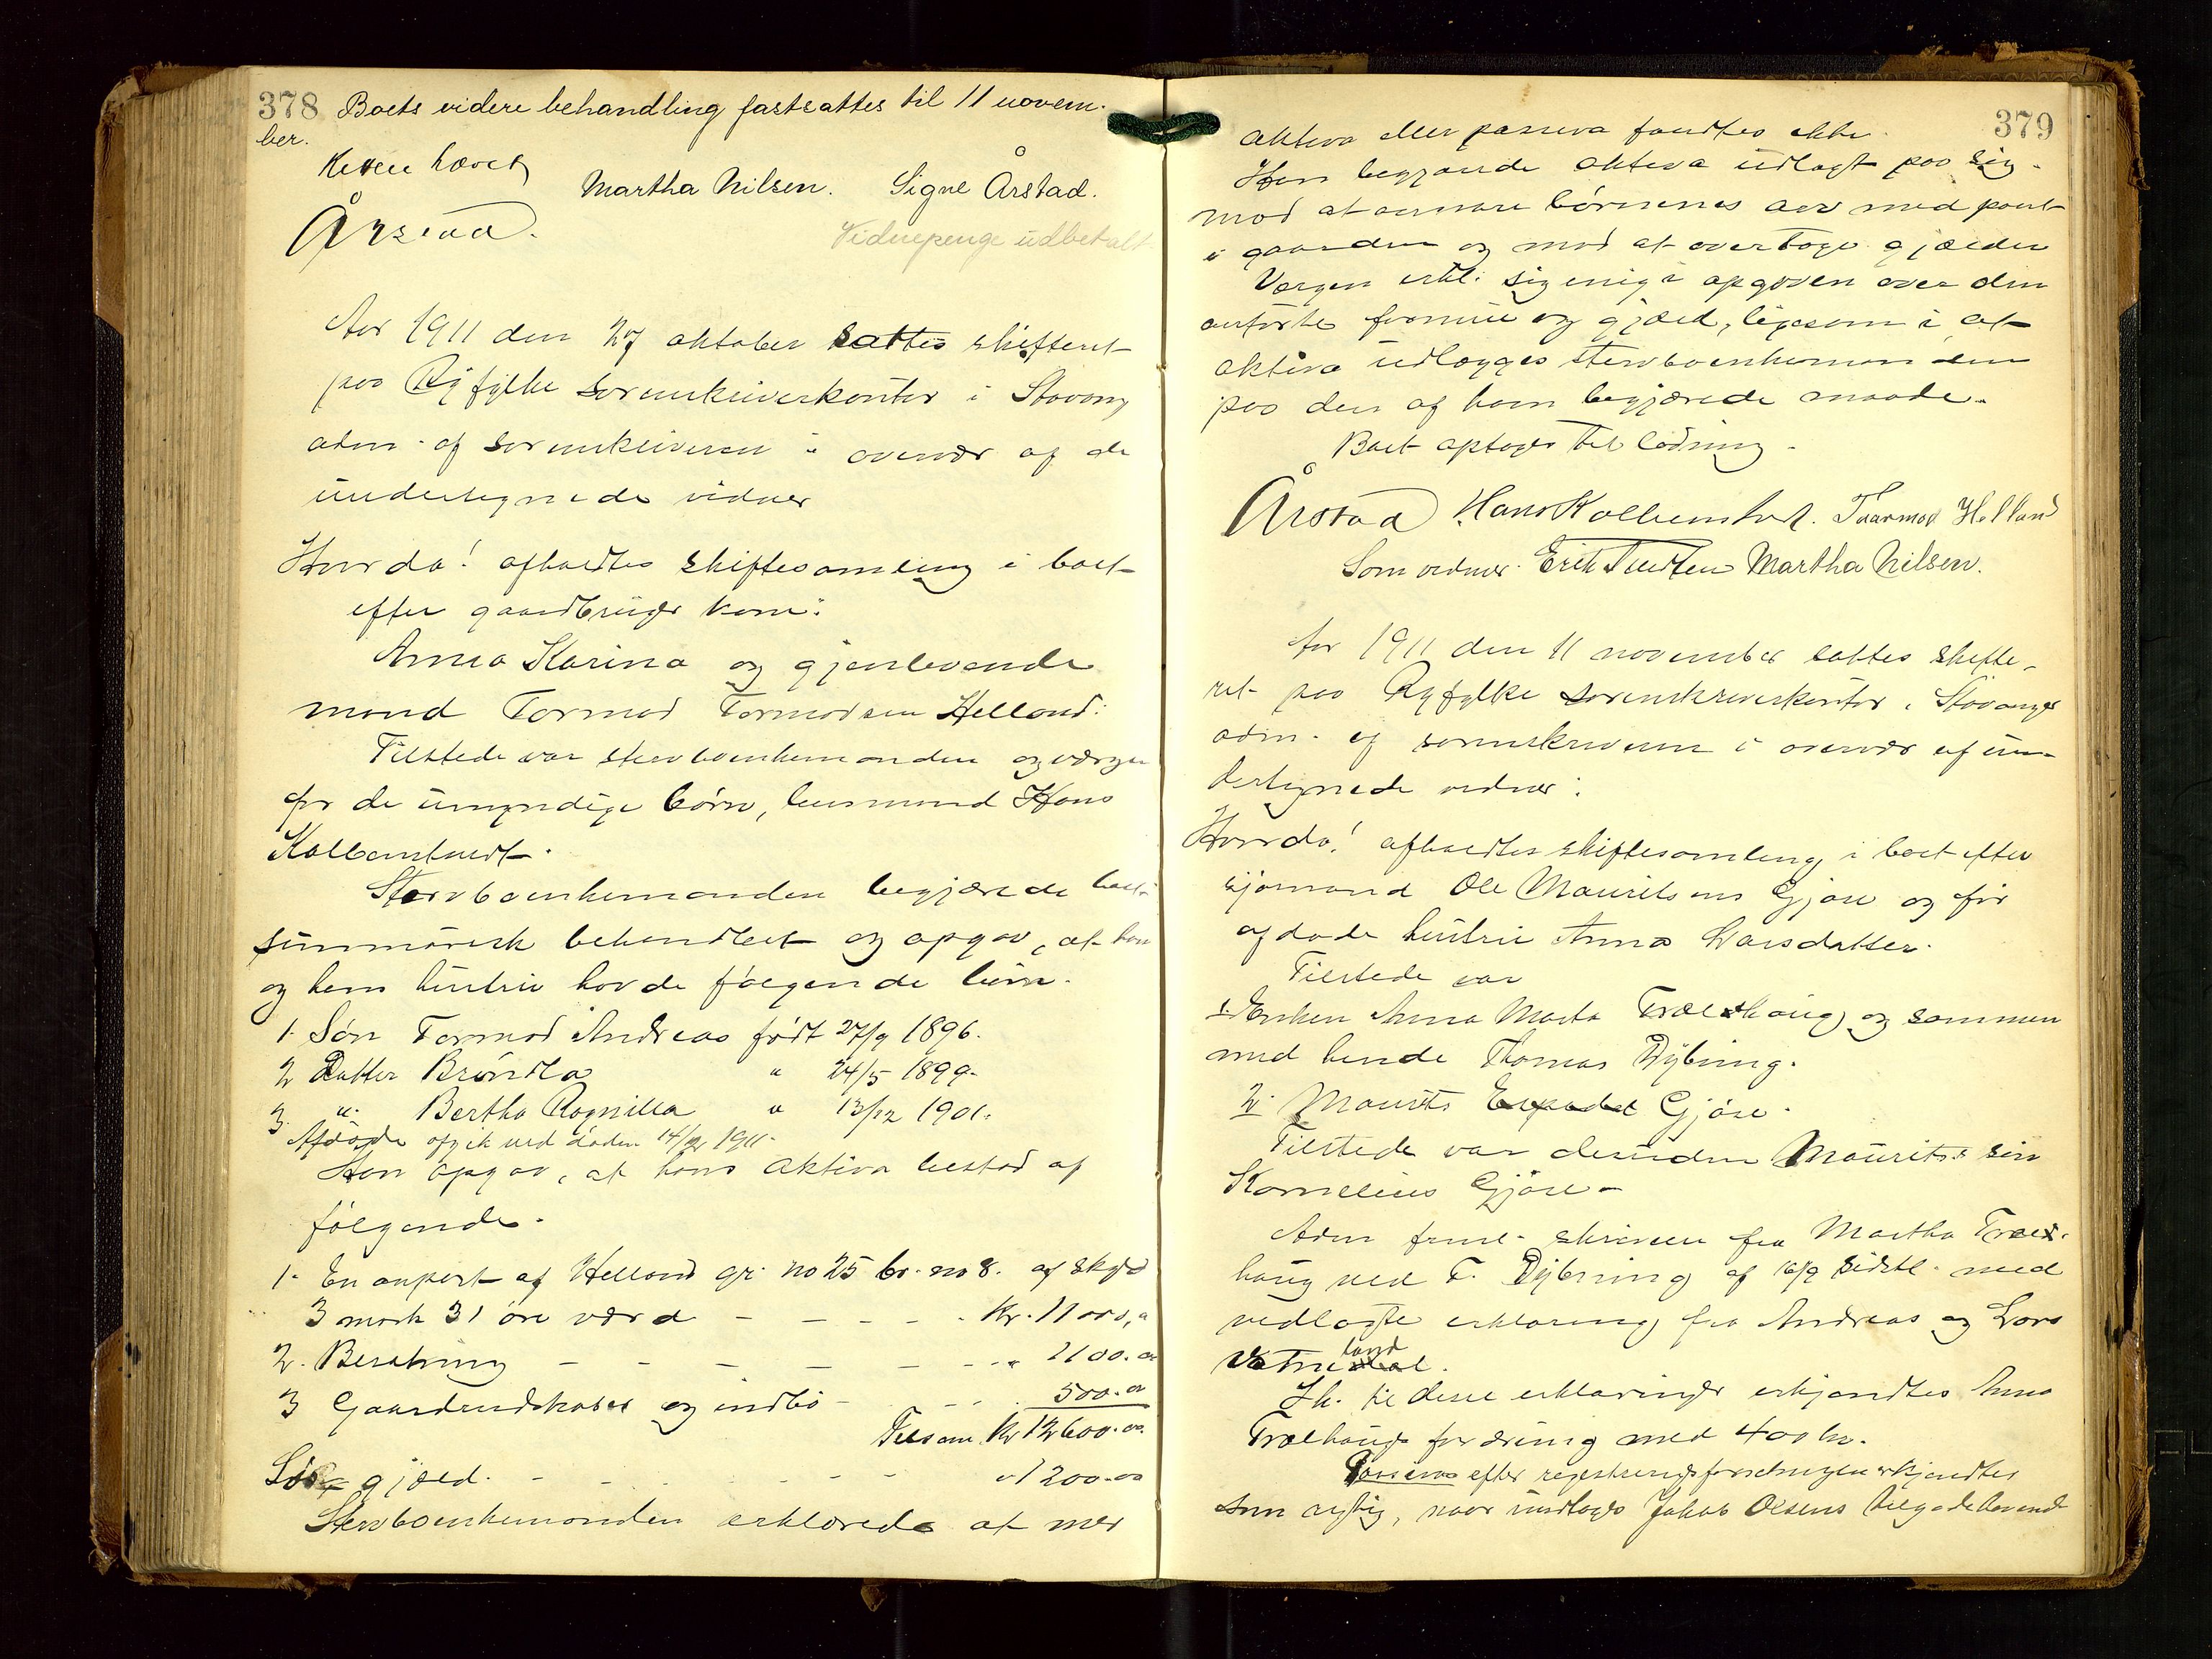 378 Boets videre behandling fastsattes til 11 novem-
ber.
Retten hævet
Martha Nilsen. Signe Årstad.
Årstad.
Vidnepenge udbetalt
Aar 1911 den 27 oktober sattes skifteret
paa Ryfylke sorenskriverkontor i Stavang
adm. af sorenskriveren i overvær af de
undertegnede vidner
Hvorda! afholdtes skiftesamling i boet
efter gaardbruger kone:
Anna Karina og gjenlevende
mand Tormod Tormodsen Helland:
Tilstede var stervboenkemanden og værgen
for de umyndige børn, husmand Hans
Kolbenstvedt.
Stervboenkemanden begjærede boet
summarisk behandlet og opgav, at han
og hans hustru havde følgende børn.
1. Søn Tormod Andreas født 27/9 1896.
2 Datter Brøndla " 24/5 1899.
3. " Bertha Ragnilla " 13/12 1901.
Afdøde afgik ved døden 14/ 1911.
Han opgav, at hans aktiva bestod af
følgende.
1. En anpart af Helland gr. no 25 br. no 8. af skyld
3 mark 31 øre værd - - - - - Kr. 11000,
2. Besætning - - - - - - " 1100.00
3 Gaardsredskaber og indbo - - - 500.00
Tilsam. Kr 12600.00
Løs gjæld. - - - - - " 1200.00
Stervboenkemanden erklærede at mer
379
aktiva eller passiva fandtes ikke.
Han begjærede aktiva udlagt paa sig
mod at ansvare børnenes arv med pant
i gaarden og mod at overtage gjælden
Værgen erkl. sig enig i opgaven over den
anførte formue og gjæld, ligesom i at
aktiva udlægges stervboenkemanden
paa den af ham begjærede maade.
Boet optoges til lodning.
Årstad Hans Kolbenstvet. Taarmod Helland
Som vidner: Erik Tveten Martha Nilsen.
Aar 1911 den 11 november sattes skifte-
ret paa Ryfylke sorenskriverkontor i Stavanger
adm. af sorenskriveren i overvær af un-
dertegnede vidner:
Hvorda! afholdtes skiftesamling i boet efter
sjømand Ole Mauritsens Gjøse og før
afdøde hustru Anna Larsdatter.
Tilstede var
1. Enken Anna Marta Trælhaug og sammen
med hende Thomas Dybing.
2. Maurits Gjøse.
Tilstede var desuden Maurits's søn
Kornelius Gjøse -
Adm freml. skrivelse fra Martha Træl-
haug ved T. Dybing af 16/9 sidstl. med
vedlagte erklæring fra Andreas og Lars
Vatneland.
I h. til disse erklæringer erkjendtes Anna
Trælhaugs fordring med 400 kr.
Passiva efter registreringsforretningen erkjendtes
som rigtig, naar undtages Jakob Olsens tilgodehavende